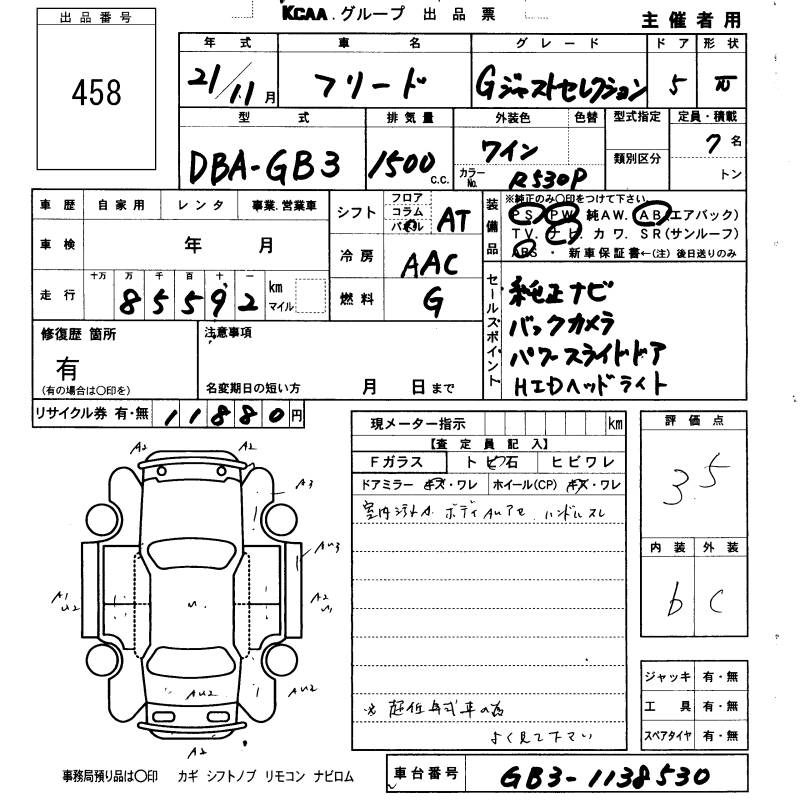 KCAA.グループ 出品票
主催者用
出品番号
458
年式 車名 グレード ドア 形状
21/11月 フリード Gジャストセレクション 5
型式 排気量 外装色 色替 型式指定 定員・積載
DBA-GB3 1500 c.c. ワイン 類別区分 7名
カラーNo. R530P トン
車歴 自家用 レンタ 事業.営業車
車検 年 月
走行 十万 万 千 百 十 一
85592 km マイル
シフト フロア コラム パネル AT
冷房 AAC
燃料 G
装備品 ※純正のみ○印をつけて下さい。
PS PW 純AW. AB(エアバック)
TV. ナビ. カワ. SR(サンルーフ)
ABS ・ 新車保証書←(注) 後日送りのみ
セールスポイント
純正ナビ
バックカメラ
パワースライドドア
HIDヘッドライト
修復歴 箇所
有
(有の場合は○印を)
注意事項
名変期日の短い方 月 日まで
リサイクル券 有・無 11880円
A2 A2
A3
AU3
A1
U2
A2
AU2 AU2
A2
現メーター指示 km
【査定員記入】
Fガラス トビ石 ヒビワレ
ドアミラー キズ・ワレ ホイール(CP) キズ・ワレ
※ 超低年式車の為
よく見て下さい
評価点
3.5
内装 外装
b c
ジャッキ 有・無
工具 有・無
スペアタイヤ 有・無
事務局預り品は○印 カギ シフトノブ リモコン ナビロム
車台番号 GB3-1138530